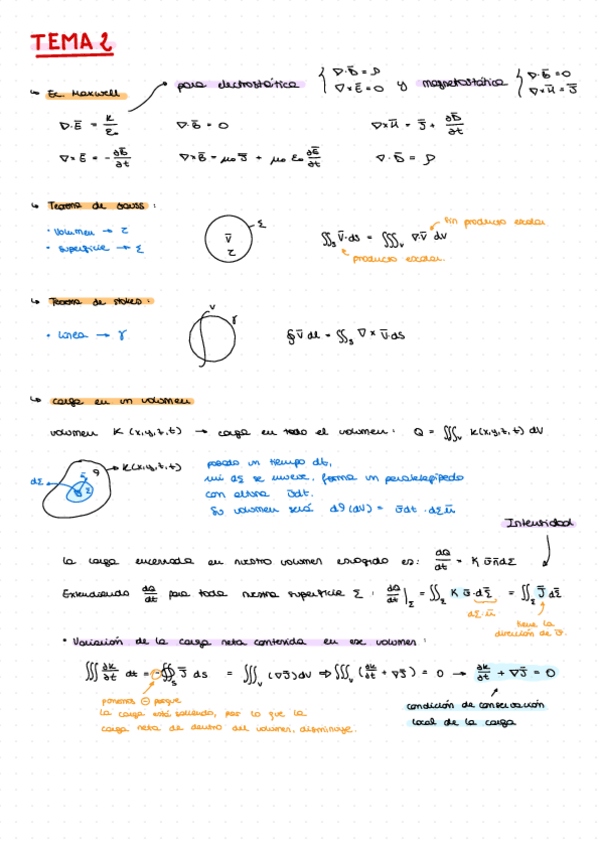 TEMA 2
↳ Ec. Maxwell → para electrostática { ∇·D̄ = ρ  ∇×Ē = 0 y magnetostática { ∇·B̄ = 0  ∇×H̄ = J̄
∇·Ē = K/ε₀    ∇·B̄ = 0    ∇×H̄ = J̄ + ∂D̄/∂t
∇×Ē = -∂B̄/∂t    ∇×B̄ = μ₀ J̄ + μ₀ ε₀ ∂Ē/∂t    ∇·D̄ = ρ
↳ Teorema de Gauss:
• Volumen → τ
• Superficie → Σ
V̄ τ Σ
∯ₛ V̄·ds = ∭ᵥ ∇·V̄ dV
sin producto escalar
producto escalar.
↳ Teorema de Stokes:
• Línea → γ
V γ
∮ V̄ dl = ∬ₛ ∇ × V̄·ds
↳ Carga en un volumen
volumen K (x,y,z,t) → carga en todo el volumen: Q = ∭ᵥ K(x,y,z,t) dV
K(x,y,z,t)
dΣ
Σ
pasado un tiempo dt,
mi dΣ se mueve, forma un paralelepípedo
con altura v̄dt.
Su volumen será dϑ(dV) = v̄dt · dΣū
Intensidad
La carga encerrada en nuestro volumen escogido es: dQ/dt = K v̄ n̄ dΣ
Extendiendo dQ/dt para toda nuestra superficie Σ: dQ/dt|Σ = ∬Σ K v̄·dΣ̄ = ∬Σ J̄ dΣ̄
dΣ·ū
tiene la
dirección de v̄.
• Variación de la carga neta contenida en ese volumen:
∭ ∂K/∂t dt = -∯ₛ J̄ ds = ∭ᵥ (∇J̄)dV ⇒ ∭ᵥ (∂K/∂t + ∇J̄) = 0 → ∂K/∂t + ∇J̄ = 0
ponemos ⊖ porque
la carga está saliendo, por lo que la
carga neta de dentro del volumen, disminuye.
condición de conservación
local de la carga